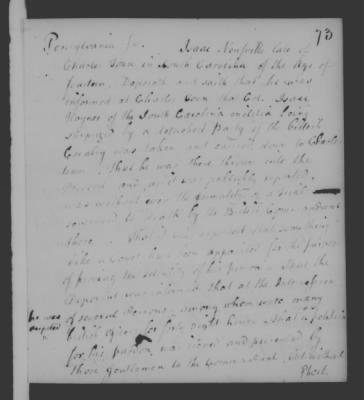 73
Pennsylvania Ss. Isaac Neufville late of
Charles Town in South Carolina of the Age of
fourteen, Deposeth and saith that he was
informed at Charles Town that Col. Isaac
Haynes of the South Carolina militia being
surprized by a detached party of the British
Cavalry was taken and carried down to Charles
town, that he was there thrown into the
Provost and as it was publickly reported
was without even the formality of a trial
sentenced to death by the British Commandant
there. That it was reported that something
like a Court had been appointed for the purpose
of proving the identity of his person. That the
Deponent was informed that at the Intercession
he was respited
of several Persons, among whom were many
british officers for forty eight hours that a petition
for his pardon was signed and presented by
those gentlemen to the Commandant, but without
Effect.